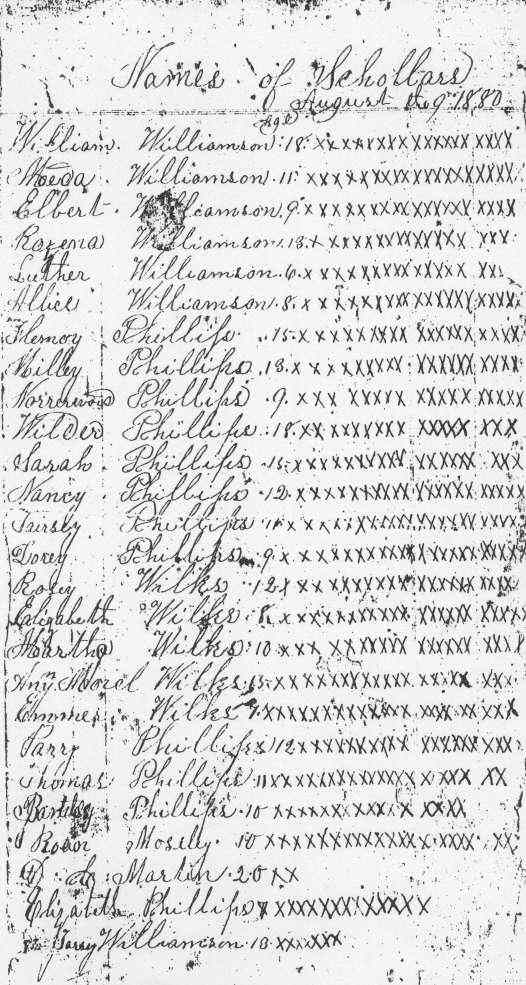 Names of Schollars
August the 9 1880
Age
William Williamson 18 x x x x x x x x x x x x x x x x x x
Williamson 11 x x x x x x x x x x x x x x x x x x
Elbert Williamson 9 x x x x x x x x x x x x x x x x x x
Rozena Williamson 13 x x x x x x x x x x x x x x x x
Luther Williamson 6 x x x x x x x x x x x x x x x
Allice Williamson 8 x x x x x x x x x x x x x x x x x
Phillips 15 x x x x x x x x x x x x x x x x x x
Milley Phillips 13 x x x x x x x x x x x x x x x x x
Phillips 9 x x x x x x x x x x x x x x x x x
Wilder Phillips 18 x x x x x x x x x x x x x x x x
Sarah Phillips 15 x x x x x x x x x x x x x x x x x
Nancy Phillips 12 x x x x x x x x x x x x x x x x x x
Phillips 11 x x x x x x x x x x x x x x x x x
Phillips 9 x x x x x x x x x x x x x x x x x
Rosey Wilks 12 x x x x x x x x x x x x x x x x x
Elizabeth Wilks 8 x x x x x x x x x x x x x x x x x x
Martha Wilks 10 x x x x x x x x x x x x x x x x x
Wilks 15 x x x x x x x x x x x x x x x x
Wilks 7 x x x x x x x x x x x x x x x x x x
Parry Phillips 12 x x x x x x x x x x x x x x x x x
Thomas Phillips 11 x x x x x x x x x x x x x x x x x
Phillips 10 x x x x x x x x x x x x x x
Moselly 10 x x x x x x x x x x x x x x x x x
Martin 20 x x
Elizabeth Phillips x x x x x x x x x x x x x
Williamson 13 x x x x x x